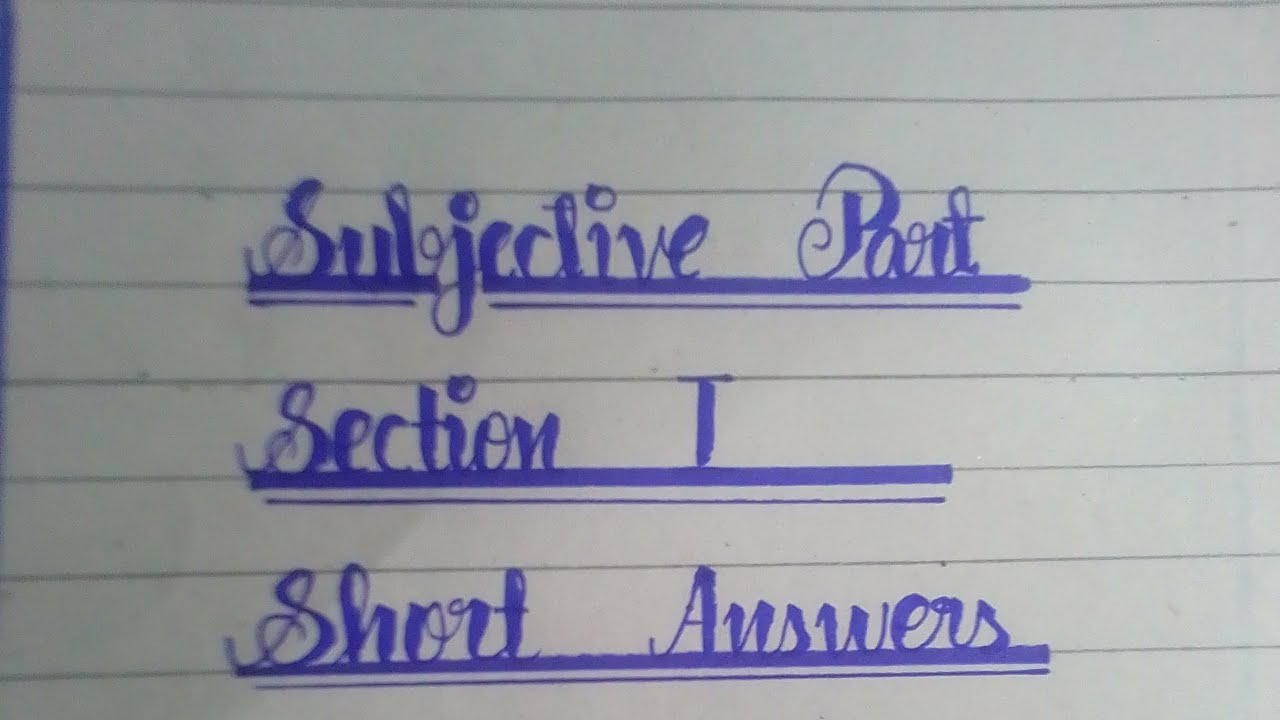 Subjective Part
Section I
Short Answers